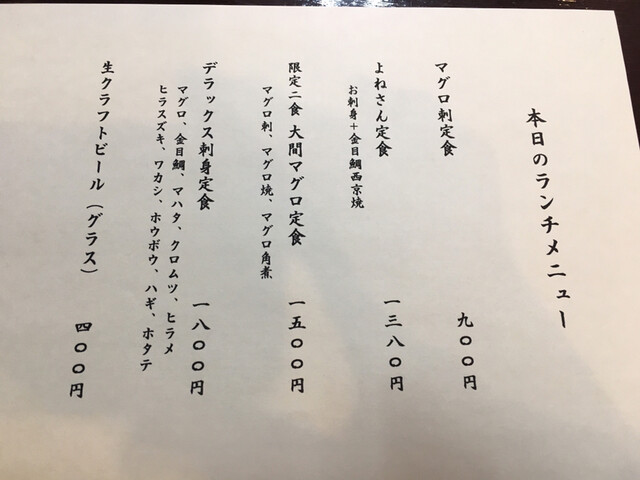 本日のランチメニュー
マグロ刺定食 九〇〇円
よねさん定食 一三八〇円
お刺身+金目鯛西京焼
限定二食 大間マグロ定食 一五〇〇円
マグロ刺、マグロ焼、マグロ角煮
デラックス刺身定食 一八〇〇円
マグロ、金目鯛、マハタ、クロムツ、ヒラメ
ヒラスズキ、ワカシ、ホウボウ、ハギ、ホタテ
生クラフトビール(グラス) 四〇〇円